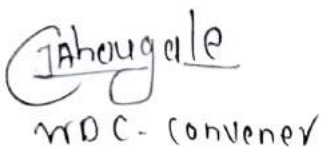 Jahougale
WDC - Convener